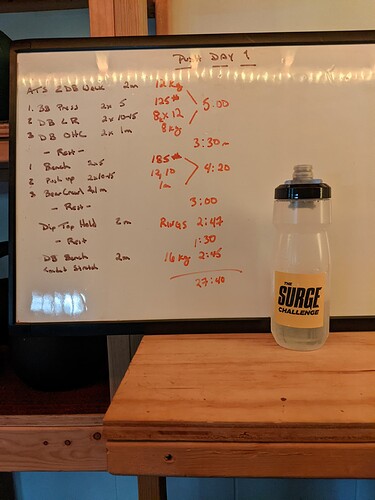 PUSH DAY 1
ATS 2DB Work 2m 12kg
1. BB Press 2 x 5 125#
2 DB LR 2x 10-15 12 5:00
3 DB OHC 2x 1m 8kg
- Rest - 3:30m
1 Bench 2x5 185#
2 Push up 2x10-15 13, 10 4:20
3 Bear Crawl 1m 1m
- Rest - 3:00
Dip Top Hold 2m RINGS 2:47
- Rest 1:30
DB Bench 2m 16kg 2:45
Stretch
27:40
THE
SURGE
CHALLENGE